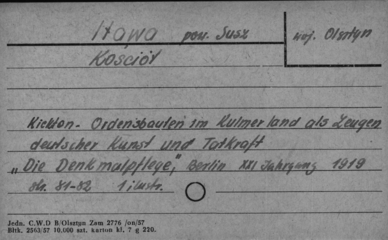 Iława pow. Susz woj. Olsztyn
Kościół
Kickton - Ordensbauten im Kulmerland als Zeugen
deutscher Kunst und Tatkraft
„Die Denkmalpflege", Berlin XXI Jahrgang 1919
str. 81-82 1 ilustr.
Jedn. C.W.D B/Olsztyn Zam 2776 /on/57
Blrk. 2563/57 10,000 szt. karton kl. 7 g 220.